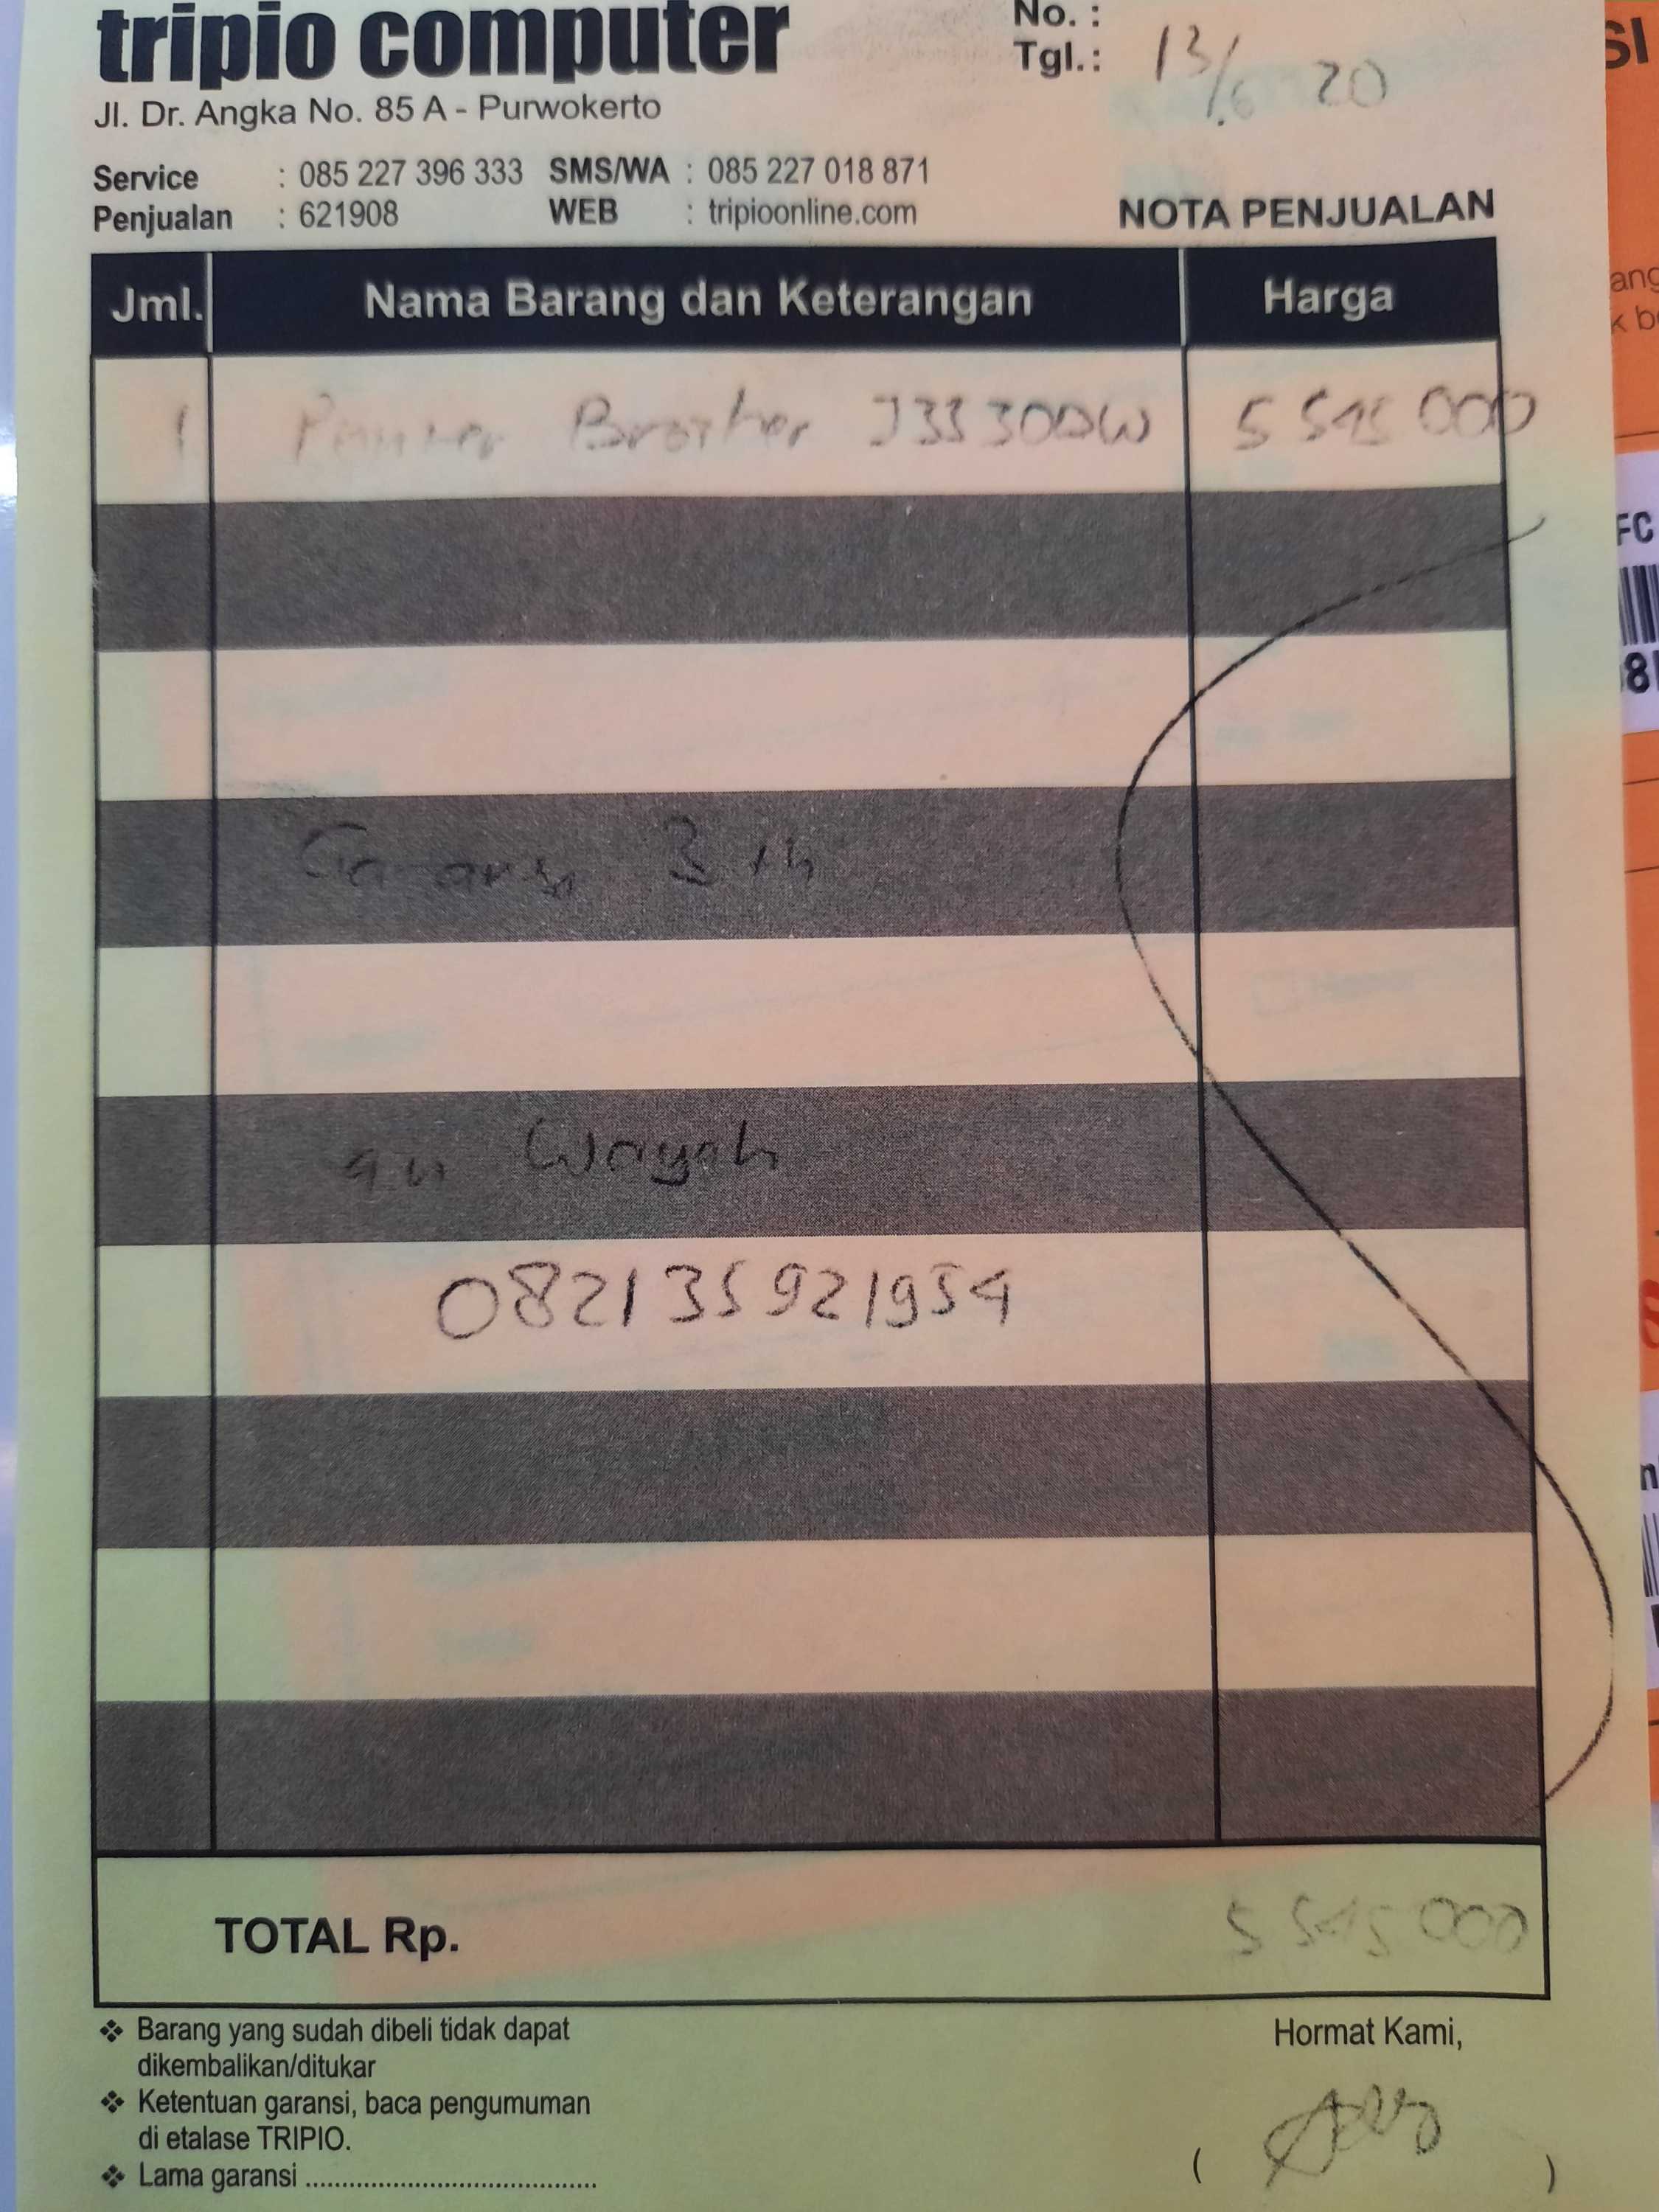 tripio computer
No. :
Tgl.: 13/6 20
Jl. Dr. Angka No. 85 A - Purwokerto
Service : 085 227 396 333 SMS/WA : 085 227 018 871
Penjualan : 621908 WEB : tripioonline.com
NOTA PENJUALAN
Jml. Nama Barang dan Keterangan Harga
1 Printer Brother J3530DW 5 515 000
Garansi 3 th
an Wayah
082135921954
TOTAL Rp. 5 515 000
❖ Barang yang sudah dibeli tidak dapat
dikembalikan/ditukar
❖ Ketentuan garansi, baca pengumuman
di etalase TRIPIO.
❖ Lama garansi ........................................
Hormat Kami,
( )
SI
ang
k b
FC